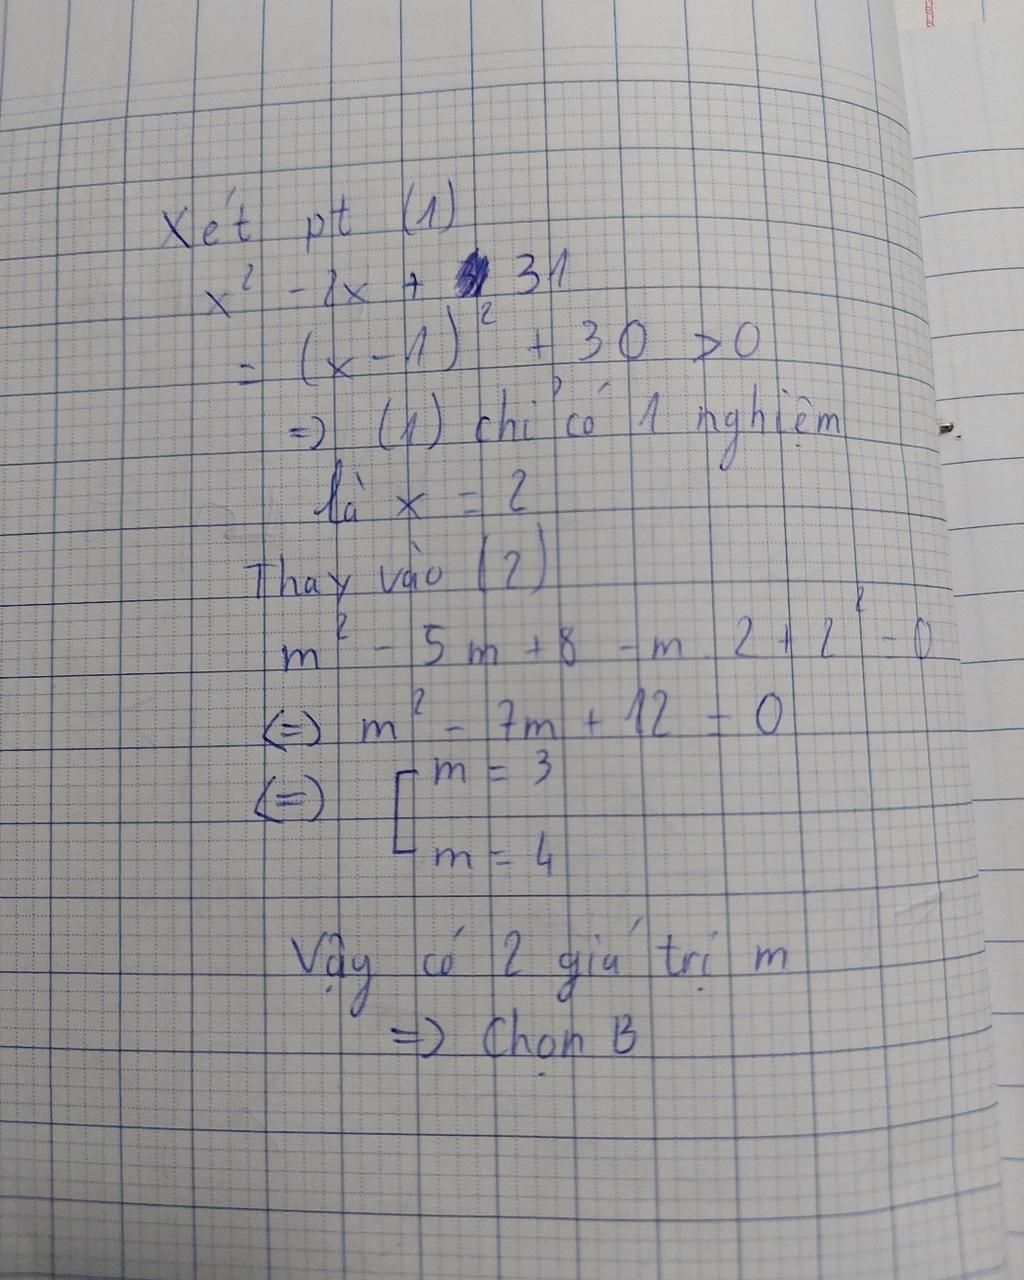 Xét pt (1)
x² - 2x + 31
= (x - 1)² + 30 > 0
=> (1) chỉ có 1 nghiệm
là x = 2
Thay vào (2)
m² - 5m + 8 - m . 2 + 2² = 0
(=) m² - 7m + 12 = 0
(=) [ m = 3
m = 4
Vậy có 2 giá trị m
=> Chọn B